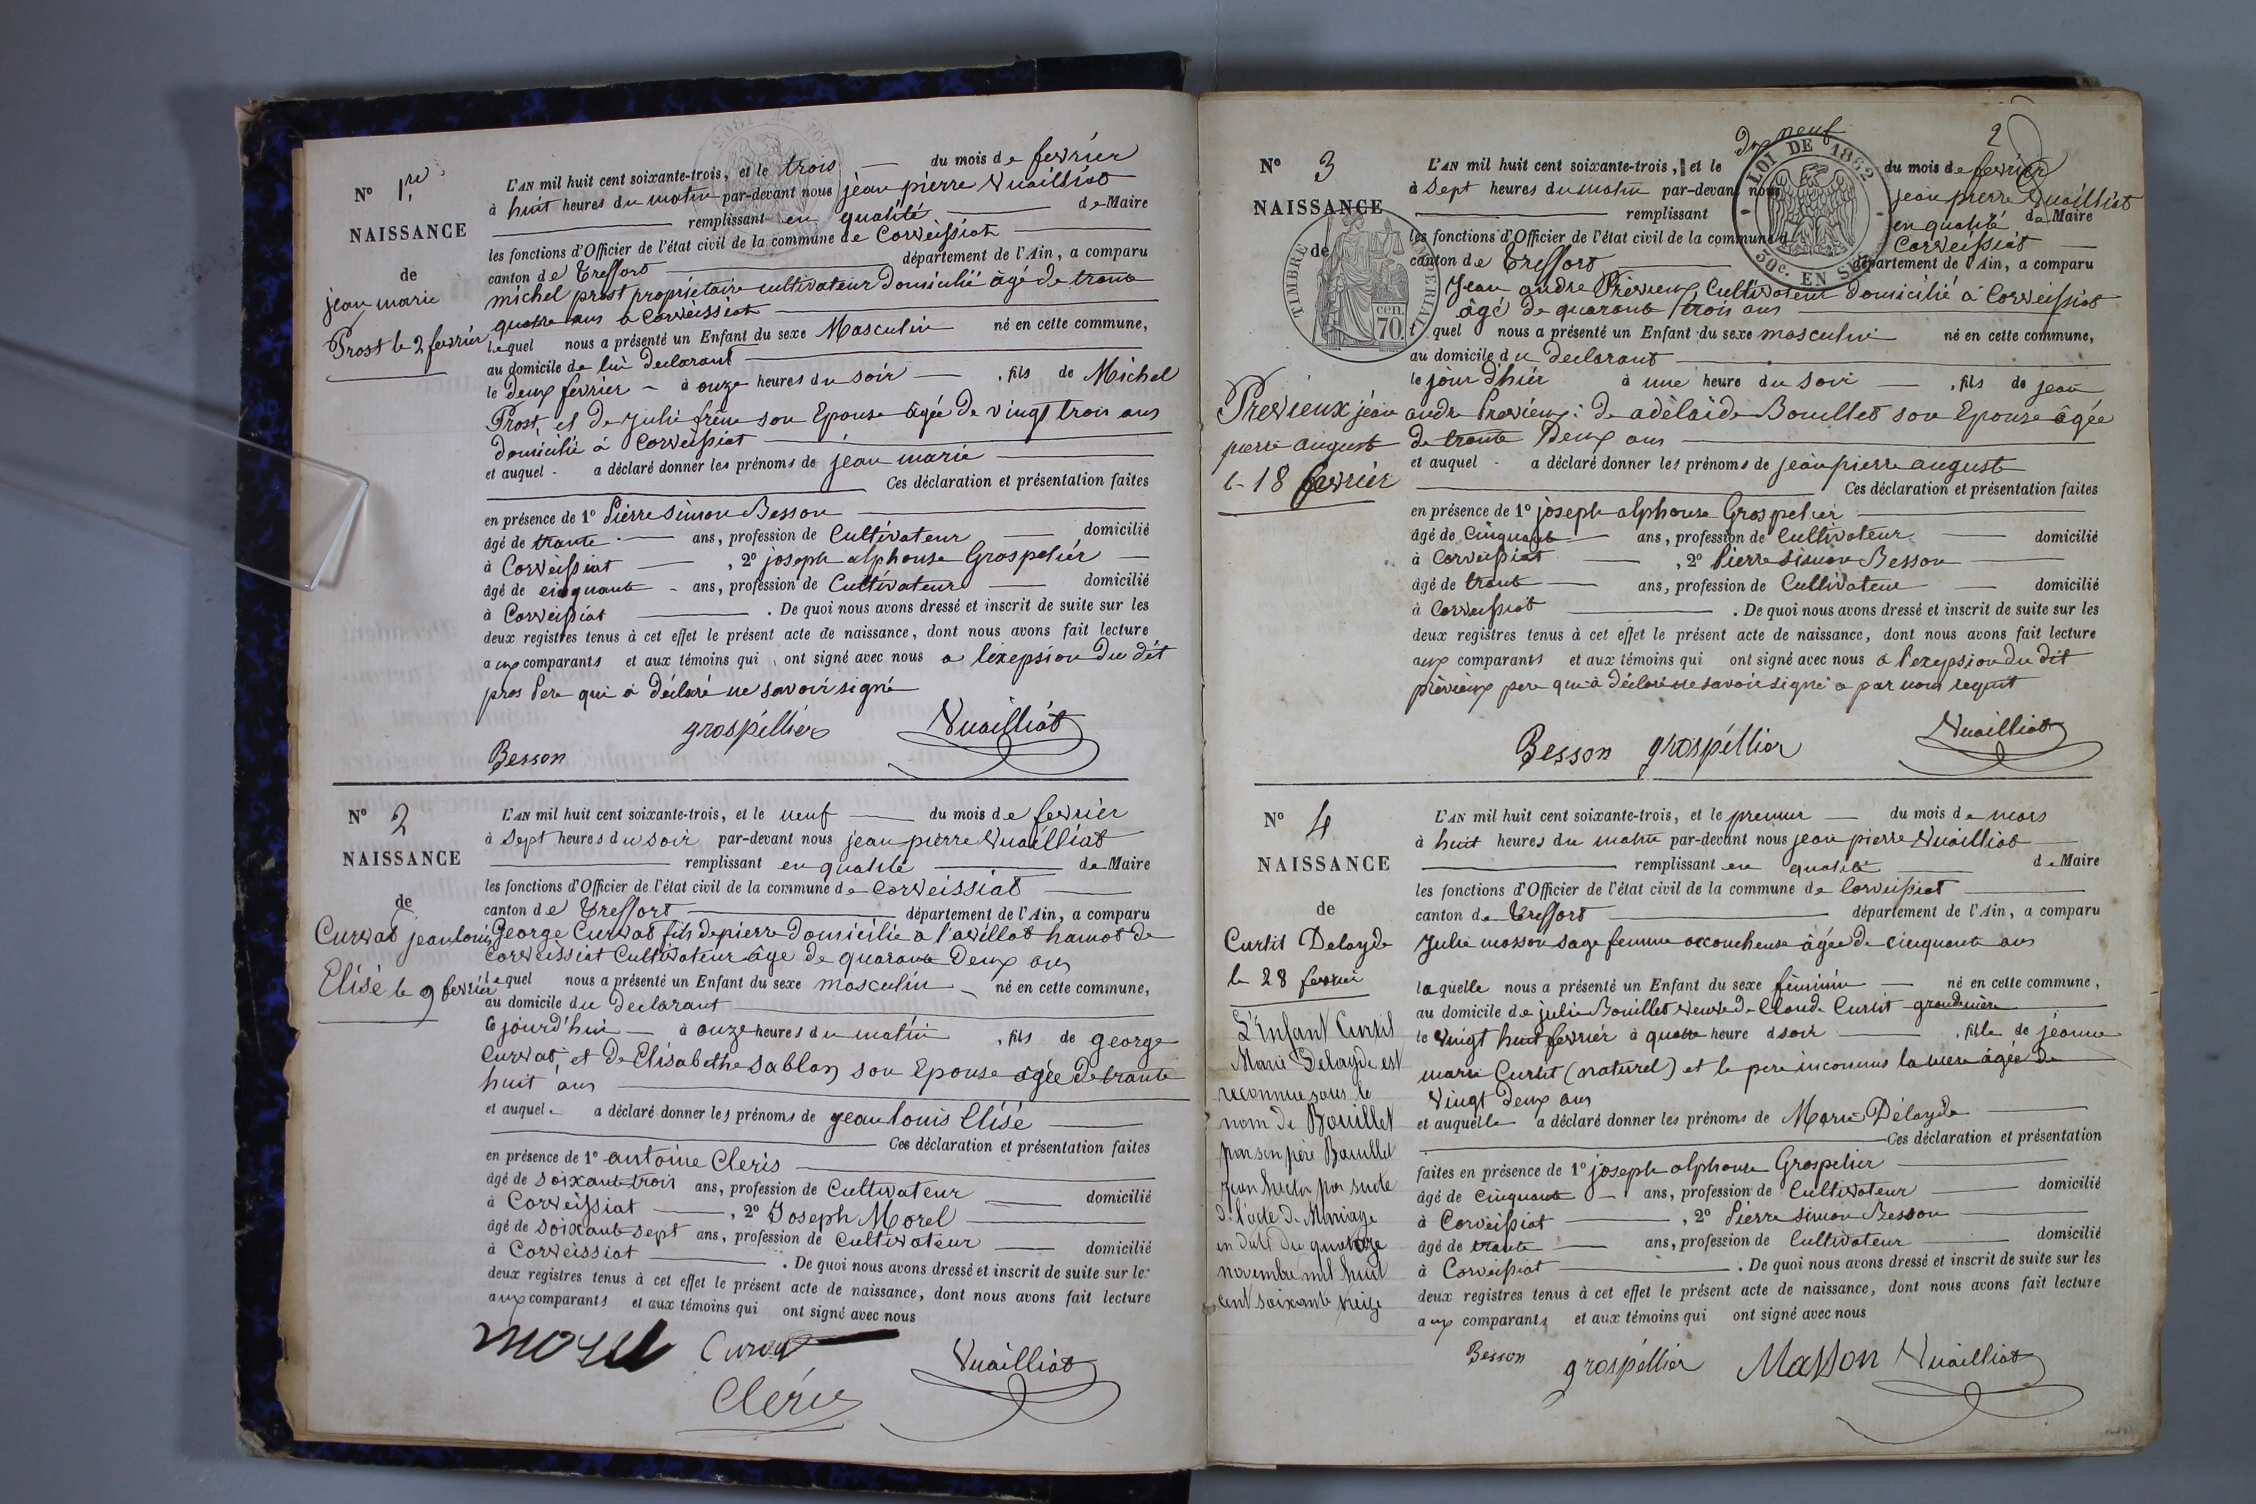 N° 1re
NAISSANCE
de
jean marie
Prost le 2 fevrier
L'AN mil huit cent soixante-trois, et le trois du mois de fevrier
à huit heures du matin par-devant nous jean pierre Vuailliat
remplissant en qualité de Maire
les fonctions d'Officier de l'état civil de la commune de Corveissiat
canton de Treffort département de l'Ain, a comparu
michel prost propriétaire cultivateur domicilié âgé de trante
quatre ans a Corveissiat
lequel nous a présenté un Enfant du sexe Masculin né en cette commune,
au domicile de lui declarant
le deux fevrier à onze heures du soir, fils de Michel
Prost, et de Julie frene son Epouse âgée de vingt trois ans
domicilié à Corveissiat
et auquel a déclaré donner les prénoms de jean marie
Ces déclaration et présentation faites
en présence de 1° Pierre simon Besson
âgé de trante ans, profession de Cultivateur domicilié
à Corveissiat, 2° joseph alphonse Grospelier
âgé de cinquante ans, profession de Cultivateur domicilié
à Corveissiat. De quoi nous avons dressé et inscrit de suite sur les
deux registres tenus à cet effet le présent acte de naissance, dont nous avons fait lecture
aux comparants et aux témoins qui ont signé avec nous a lexepsion du dit
pros Pere qui à déclaré ne savoir signé
Besson grospéllier Vuailliat
N° 2
NAISSANCE
de
Curvat jean louis
Elisé le 9 fevrier
L'AN mil huit cent soixante-trois, et le neuf du mois de fevrier
à Sept heures du soir par-devant nous jean pierre Vuailliat
remplissant en qualité de Maire
les fonctions d'Officier de l'état civil de la commune de Corveissiat
canton de Treffort département de l'Ain, a comparu
George Curvat fils de pierre domicilié a l'avillat hamot de
Corveissiat Cultivateur âge de quarante Deux ans
lequel nous a présenté un Enfant du sexe masculin né en cette commune,
au domicile du Declarant
le jourd'hui à onze heures du matin, fils de george
Curvat et de Elisabethe sablon son Epouse âgée de trante
huit ans
et auquel a déclaré donner les prénoms de jean louis Elisé
Ces déclaration et présentation faites
en présence de 1° antoine Cleris
âgé de soixante trois ans, profession de Cultivateur domicilié
à Corveissiat, 2° Joseph Morel
âgé de soixante sept ans, profession de Cultivateur domicilié
à Corveissiat. De quoi nous avons dressé et inscrit de suite sur les
deux registres tenus à cet effet le présent acte de naissance, dont nous avons fait lecture
aux comparants et aux témoins qui ont signé avec nous
morel Curvat Vuailliat
Cléris
2
N° 3
NAISSANCE
de
TIMBRE IMPERIAL
cen. 70.
LOI DE 1862
50c. EN SUS
Previeux jéan
pierre august
le 18 fevrier
L'AN mil huit cent soixante-trois, et le dix neuf du mois de fevrier
à Sept heures du matin par-devant nous jean pierre Vuailliat
remplissant en qualité de Maire
les fonctions d'Officier de l'état civil de la commune d Corveissiat
canton de Treffort département de l'Ain, a comparu
Jean andre Prévieux Cultivateur domicilié à Corveissiat
âgé de quarante trois ans
l quel nous a présenté un Enfant du sexe masculin né en cette commune,
au domicile du Declarant
le jour d'hiér à une heure du soir, fils de jean
andre Previeux : de adèlaïde Bouillet son Epouse âgée
de trante Deux ans
et auquel a déclaré donner les prénoms de jean pierre august
Ces déclaration et présentation faites
en présence de 1° joseph alphonse Grospelier
âgé de Cinquante ans, profession de Cultivateur domicilié
à Corveissiat, 2° Pierre simon Besson
âgé de trante ans, profession de Cultivateur domicilié
à Corveissiat. De quoi nous avons dressé et inscrit de suite sur les
deux registres tenus à cet effet le présent acte de naissance, dont nous avons fait lecture
aux comparants et aux témoins qui ont signé avec nous a l'exepsion du dit
prévieux pere qui à déclaré ne savoir signé a par nous requit
Besson grospéllier Vuailliat
N° 4
NAISSANCE
de
Curtit Delayde
le 28 fevrier
L'Enfant Curtil
Marie Delayde est
reconnue sous le
nom de Bouillet
par son père Bouillet
Jean hector par suite
de l'acte de Mariage
en date du quatorze
novembre mil huit
cent soixante treize
L'AN mil huit cent soixante-trois, et le premier du mois de mars
à huit heures du matin par-devant nous jean pierre Vuailliat
remplissant en qualité de Maire
les fonctions d'Officier de l'état civil de la commune de Corveissiat
canton de Treffort département de l'Ain, a comparu
Julie masson sage femme accoucheuse âgée de cinquante ans
laquelle nous a présenté un Enfant du sexe féminin né en cette commune,
au domicile de julie Bouillet veuve de Claude Curtit grandmère
le vingt huit fevriér à quatre heure d soir, fille de jéanne
marie Curtit (naturel) et le pere inconnus la mere âgée de
vingt deux ans
et auquelle a déclaré donner les prénoms de Marie Délayde
Ces déclaration et présentation
faites en présence de 1° joseph alphonse Grospelier
âgé de Cinquante ans, profession de Cultivateur domicilié
à Corveissiat, 2° Pierre simon Besson
âgé de trante ans, profession de Cultivateur domicilié
à Corveissiat. De quoi nous avons dressé et inscrit de suite sur les
deux registres tenus à cet effet le présent acte de naissance, dont nous avons fait lecture
aux comparants et aux témoins qui ont signé avec nous
Besson grospéllier Masson Vuailliat